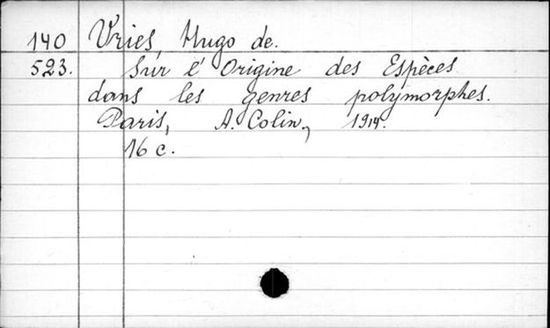 140 Vries, Hugo de.
523. Sur l'Origine des Espèces
dans les genres polymorphes.
Paris, A. Colin, 1914.
16 c.